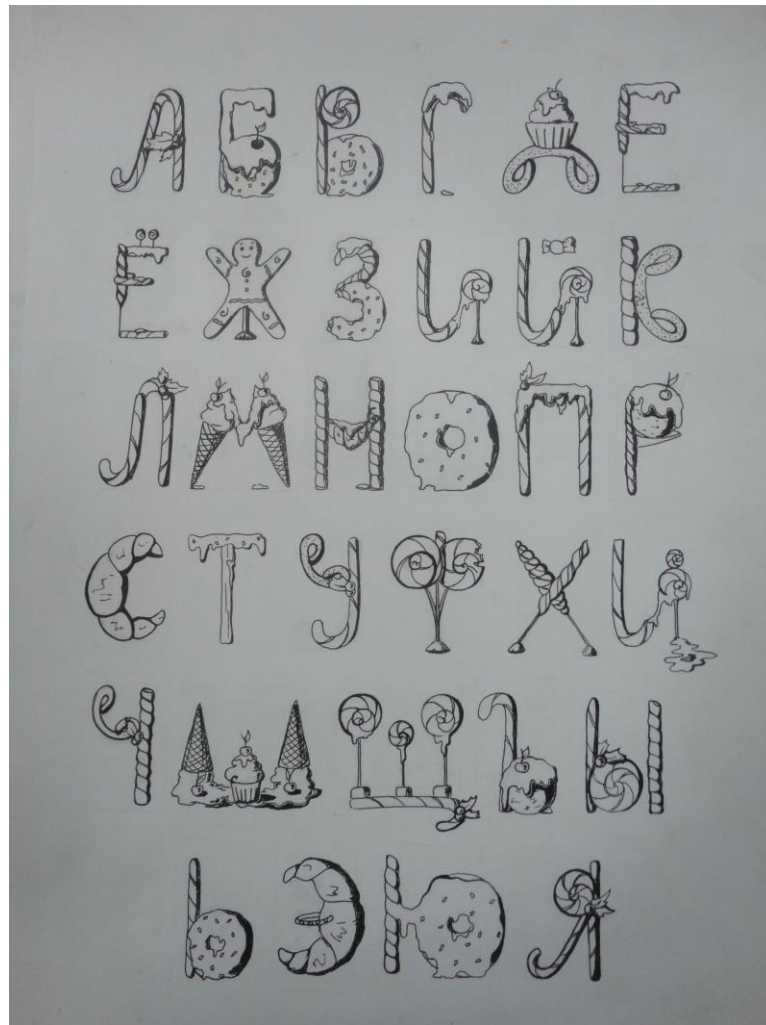 А Б В Г Д Е
Ё Ж З И Й К
Л М Н О П Р
С Т У Ф Х Ц
Ч Ш Щ Ъ Ы
Ь Э Ю Я